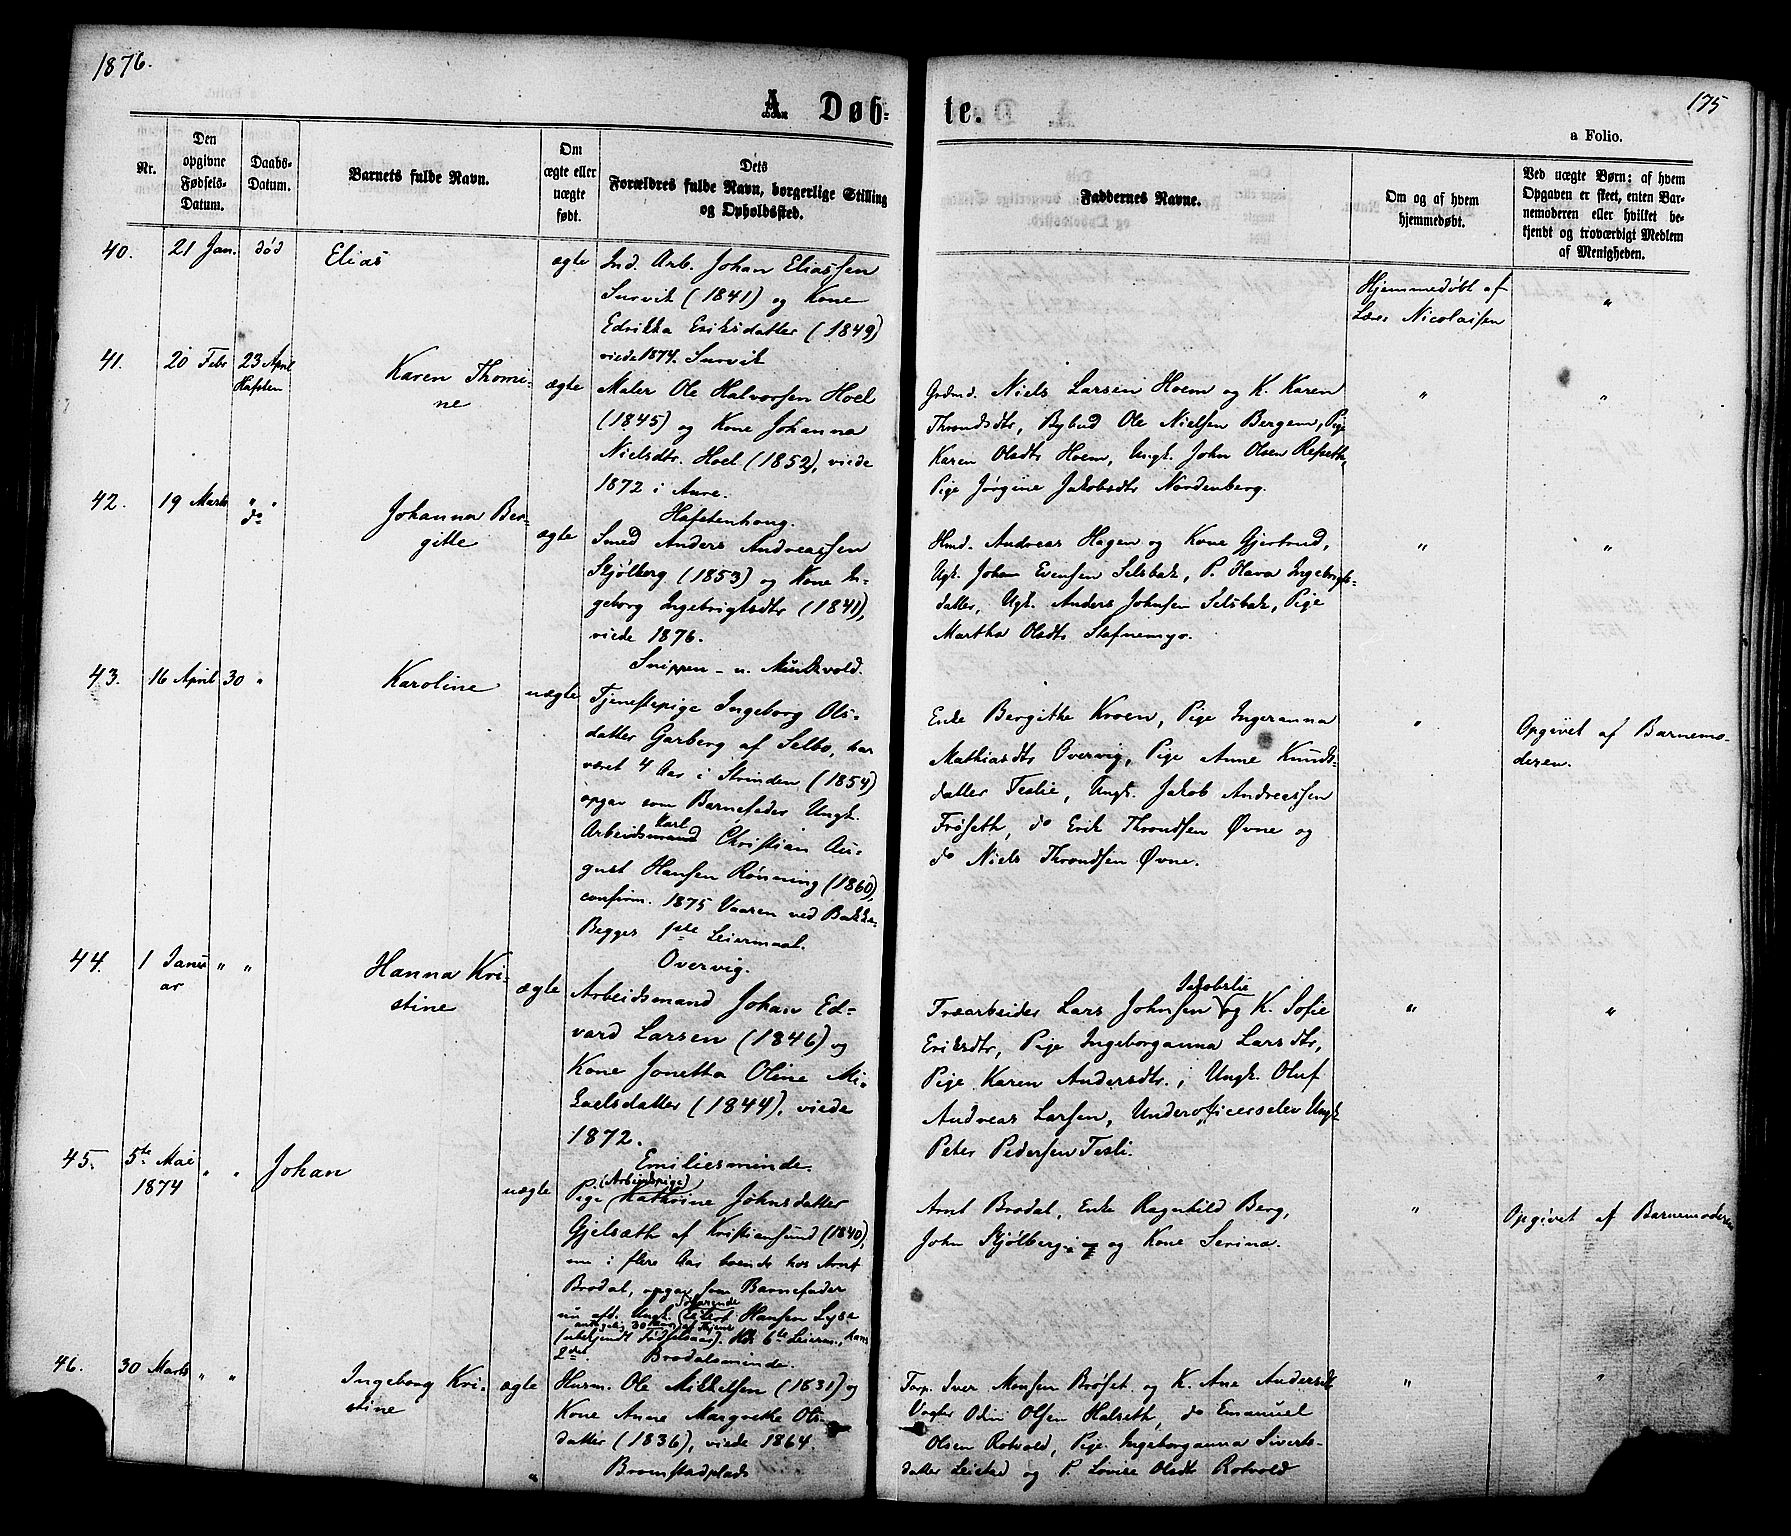 1876.
175
A. Døb-
te.
a Folio.
Nr.
Den
opgivne
Fødsels-
Datum.
Daabs-
Datum.
Barnets fulde Navn.
Om
ægte eller
uægte
født.
Dets
Forældres fulde Navn, borgerlige Stilling
og Opholdssted.
Faddernes Navne.
Om og af hvem
hjemmedøbt.
Ved uægte Børn: af hvem
Opgaven er skeet, enten Bar-
nemoderen eller hvilket be-
kjendt og troværdigt Medlem
af Menigheden.
40.
21 Jan.
død
Elias
ægte
Ind. Arb. Johan Eliassen
Survik (1841) og Kone
Edrikka Eriksdatter (1849)
viede 1874. Survik
Hjemmedøbt af
Lærer Nicolaisen
"
41.
20 Febr
23 April
Hafsten
Karen Thomi-
ne
ægte
Maler Ole Halvorsen Hoel
(1845) og Kone Johanna
Nielsdtr. Hoel (1852), viede
1872 i Aure.
Hafstenhoug.
Grdmd. Niels Larsen Hoem og K. Karen
Throndsdtr, Bybud Ole Nielsen Bergem, Pige
Karen Olsdtr Hoem, Ungk. John Olsen Refseth,
Pige Jørgine Jakobsdtr Nordenberg.
"
"
42.
19 Marts
" "
do
Johanna Ber-
gitte
ægte
Smed Anders Andreassen
Skjølberg (1853) og Kone In-
geborg Ingebrigtsdtr (1841),
viede 1876.
Snippen - u. Munkvold.
Hmd. Andreas Hagen og Kone Gjertrud,
Ungk. Johan Evensen Selsbak, P. Hava Ingebrigts-
datter, Ungk. Anders Johnsen Selsbak, Pige
Martha Olsdtr Stefnemyr.
"
"
43.
16 April
30 "
Karoline
uægte
Tjenestepige Ingeborg Ols-
datter Garberg af Selbo, har
været 4 Aar i Strinden (1854)
opgav som Barnefader Ungk.
Karl
Arbeidsmand Christian Au-
gust Hansen Rønning (1860),
confirm. 1875 Vaaren ved Bakke.
Begges 1ste Leiermaal.
Overvig.
Enke Bergithe Kroen, Pige Ingeranna
Mathiasdtr Overvig, Pige Anne Knuds-
datter Teslie, Ungk. Jakob Andreassen
Frøseth, do Erik Throndsen Øvne og
do Niels Throndsen Øvne.
"
Opgivet af Barnemo-
deren.
44.
1 Janu-
ar
" "
Hanna Kri-
stine
ægte
Arbeidsmand Johan Ed-
vard Larsen (1846) og
Kone Jonetta Oline Mi-
kaelsdatter (1844), viede
1872.
Emiliesminde.
Jakobslie
Træarbeider Lars Johnsen og K. Sofie
Eriksdtr, Pige Ingeborganna Larsdtr,
Pige Karen Andersdtr., Ungk. Oluf
Andreas Larsen, Underofficerselev Ungk
Peter Pedersen Tesli.
"
"
45.
5te Mai
1874
" "
Johan
uægte
(Arbeidspige)
Pige Kathrine Johnsdatter
Gjelsæth af Kristiansund (1840),
nu i flere Aar boende hos Arnt
Brodal, opgav som Barnefader
Søfarende
nu afd. Ungk. Edvert Hansen Lysø
antagelig 30 Aar af Hjemc
(ubekjendt Fødselsaar). Hds 6te Leierm., hans
2det.
Brodalsminde.
Arnt Brodal, Enke Ragnhild Berg,
John Skjølberg og Kone Serina.
"
Opgivet af Barnemoderen
46.
30 Marts
" "
Ingeborg Kri-
stine
ægte
Husm. Ole Mikkelsen (1831) og
Kone Anne Margrethe Ols-
datter (1836), viede 1864.
Bromstadplads
"
Forp. Iver Monsen Brøset og K. Ane Andersdtr
Vogter Odin Olsen Halseth, do Emanuel
Olsen Rotvold, Pige Ingeborganna Siverts-
datter Leistad og P. Lovise Olsdtr Rotvold
"
"